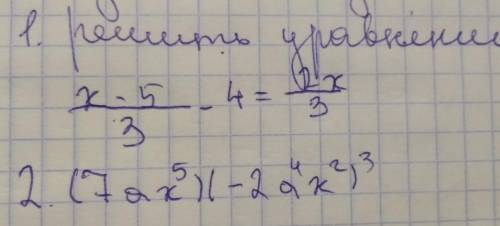 1. решить уравнение
x - 5 / 3 - 4 = 2x / 3
2. (7ax⁵)(-2a⁴x²)³